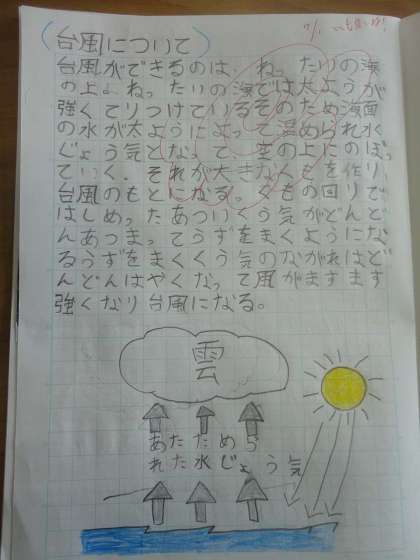 (台風について)
台風ができるのは、ねったいの海
の上。ねったいの海では太ようが
強くてりつけているそのため海面
の水が太ようによって温められ水
じょう気となって、空の上にのぼっ
ていく。それが大きなくもを作り、
台風のもとになる。くもの回りで
はしめったあついくう気がどんど
んあつまってうずをまくようにな
るうずをまくくう気のながれはど
んどんはやくなって風がますます
強くなり台風になる。
雲
あたためら
れた水じょう気